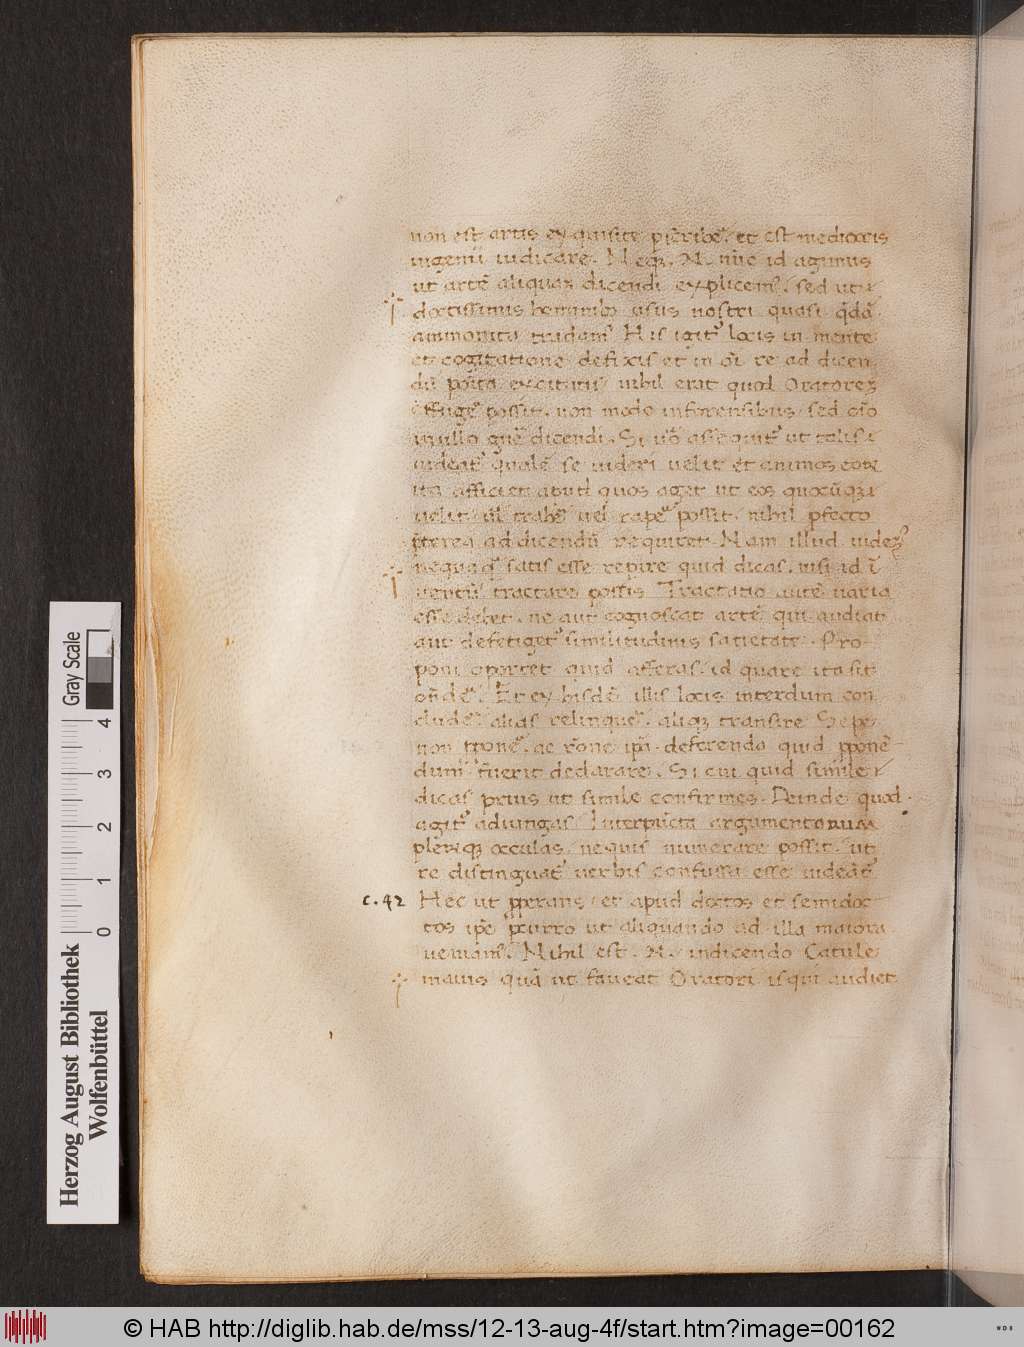 non est artis exquisite p̃scribe᷑. et est mediocris
ingenii iudicare. Neqꝫ .N. nũc id agimus
ut artẽ aliquaꝫ dicendi explicem᷒. sed ut
doctissimis hominibꝫ usus nostri quasi q̃dã
ammonitũ tradam᷒ His igit᷑ locis in mente
et cogitatione defixis et in oĩ re ad dicen
dũ posita excitatis nihil erit quod Oratoreꝫ
effuge᷑ possit. non modo in forensibus sed oĩo
in ullo gñe dicendi. Si uõ assequit᷑ ut talis
uideat᷑ qualẽ se uideri uelit et animos eoꝝ
ita afficiet apud quos aget ut eos quocũqꝫ
uelit ul̃ trahe᷑ uel rape᷑ possit. nihil pfecto
p̃terea ad dicendũ requiret. Nam illud uideꝫ᷒
nequaq̃ satis esse reꝑire quid dicas. nisi id ĩ
uentũ tractare possis Tractatio autẽ uaria
esse debet. ne aut cognoscat artẽ qui audiat
aut defetiget᷑ similitudinis satietate. Pro
poni oportet quid afferas. id quare ita sit
oñde᷑. Et ex hisdẽ illis locis interdum con
clude᷑. alias relinque᷑. aliqꝫ transire Sepe
non ꝓpone᷑. ac rõne ip̃a deferendo quid ꝓpone᷑
dum᷒ fuerit declarare. Si cui quid simile
dicas prius ut simile confirmes. Deinde quod
agit᷑ adiungas Interpũcta argumentorum
plerũqꝫ occulas. nequis numerare possit. ut
re distinguat᷑ uerbis confussa esse uideãt᷑
c. 42 Hec ut ꝓperans. et apud doctos et semidoc
tos ip̃e ꝑcurro ut aliquando ad illa maiora
ueniam᷒. Nihil est .N. in dicendo Catule
maius quã ut faueat Oratori is qui audiet
Gray Scale
4
3
2
1
0
Herzog August Bibliothek
Wolfenbüttel
© HAB http://diglib.hab.de/mss/12-13-aug-4f/start.htm?image=00162